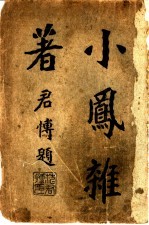 小鳳雜
著
君慱題